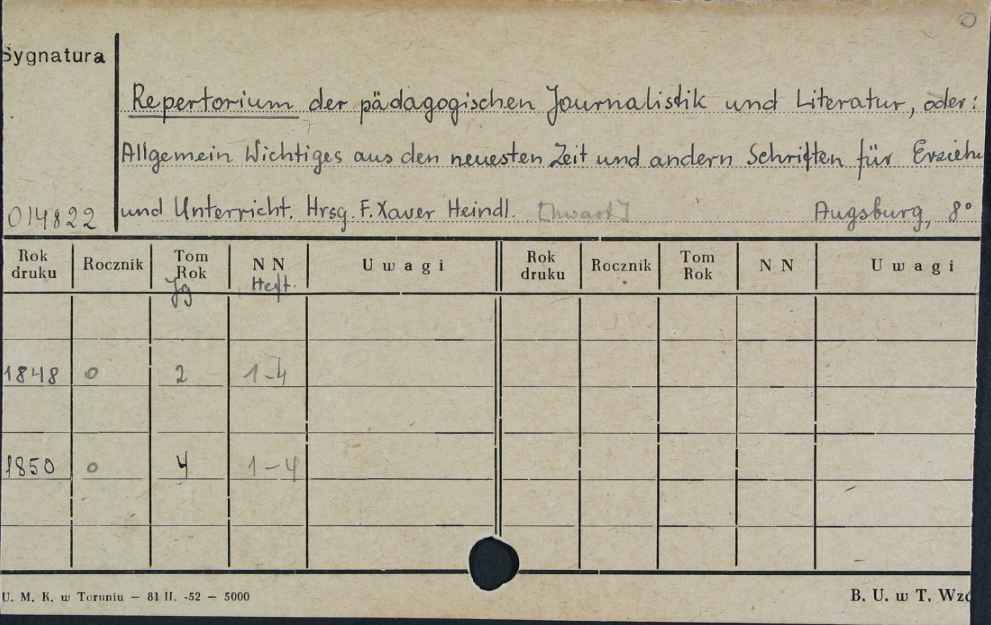 Sygnatura
Repertorium der pädagogischen Journalistik und Literatur, oder:
Allgemein Wichtiges aus den neuesten Zeit und andern Schriften für Erziehu
und Unterricht. Hrsg. F. Xaver Heindl. Augsburg, 8°
014822
Rok druku Rocznik Tom Rok N N U w a g i Rok druku Rocznik Tom Rok N N U w a g i
Jg Heft.
1848 0 2 1-4
1850 0 4 1-4
U. M. K. w Toruniu — 81 II. -52 — 5000 B. U. w T. Wzó